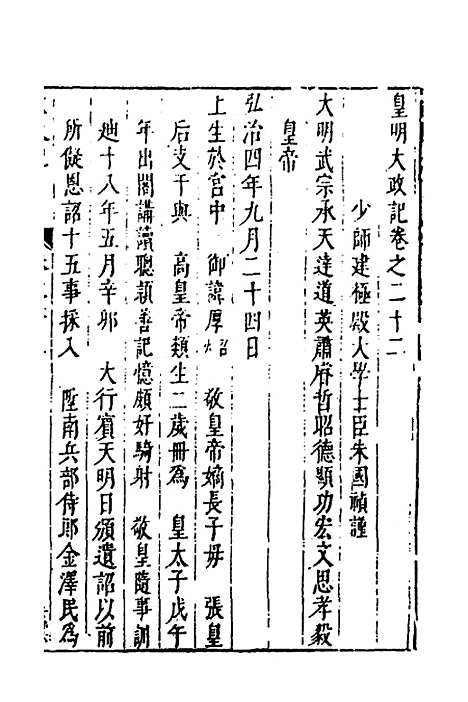 皇明大政記卷之二十二
少師建極殿大學士臣朱國禎謹
大明武宗承天達道英肅睿哲昭德顯功宏文思孝毅
皇帝
弘治四年九月二十四日
上生於宮中 御諱厚炤 敬皇帝嫡長子母 張皇
后支干與 高皇帝類生二歲冊為 皇太子戊午
年出閣講讀聰穎善記憶頗好騎射 敬皇隨事訓
迪十八年五月辛卯 大行賓天明日頒遺詔以前
所儗恩詔十五事採入 陞南兵部侍郎金澤民為